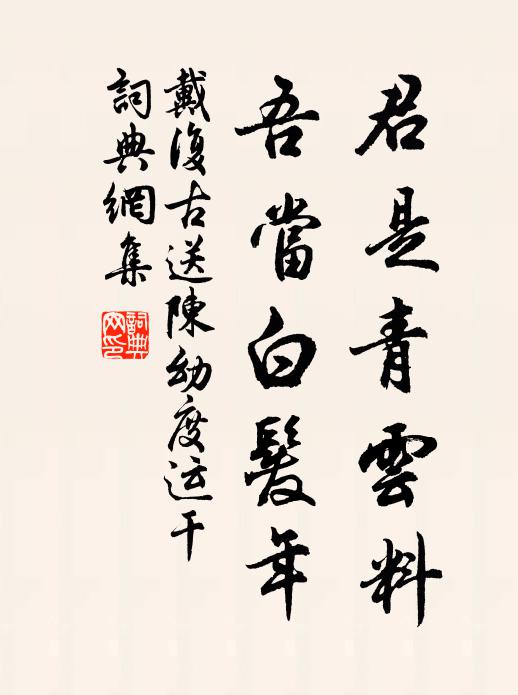 君是青雲料
吾當白髮年
戴復古送陳幼度运干
詞典網集
詞典
网印